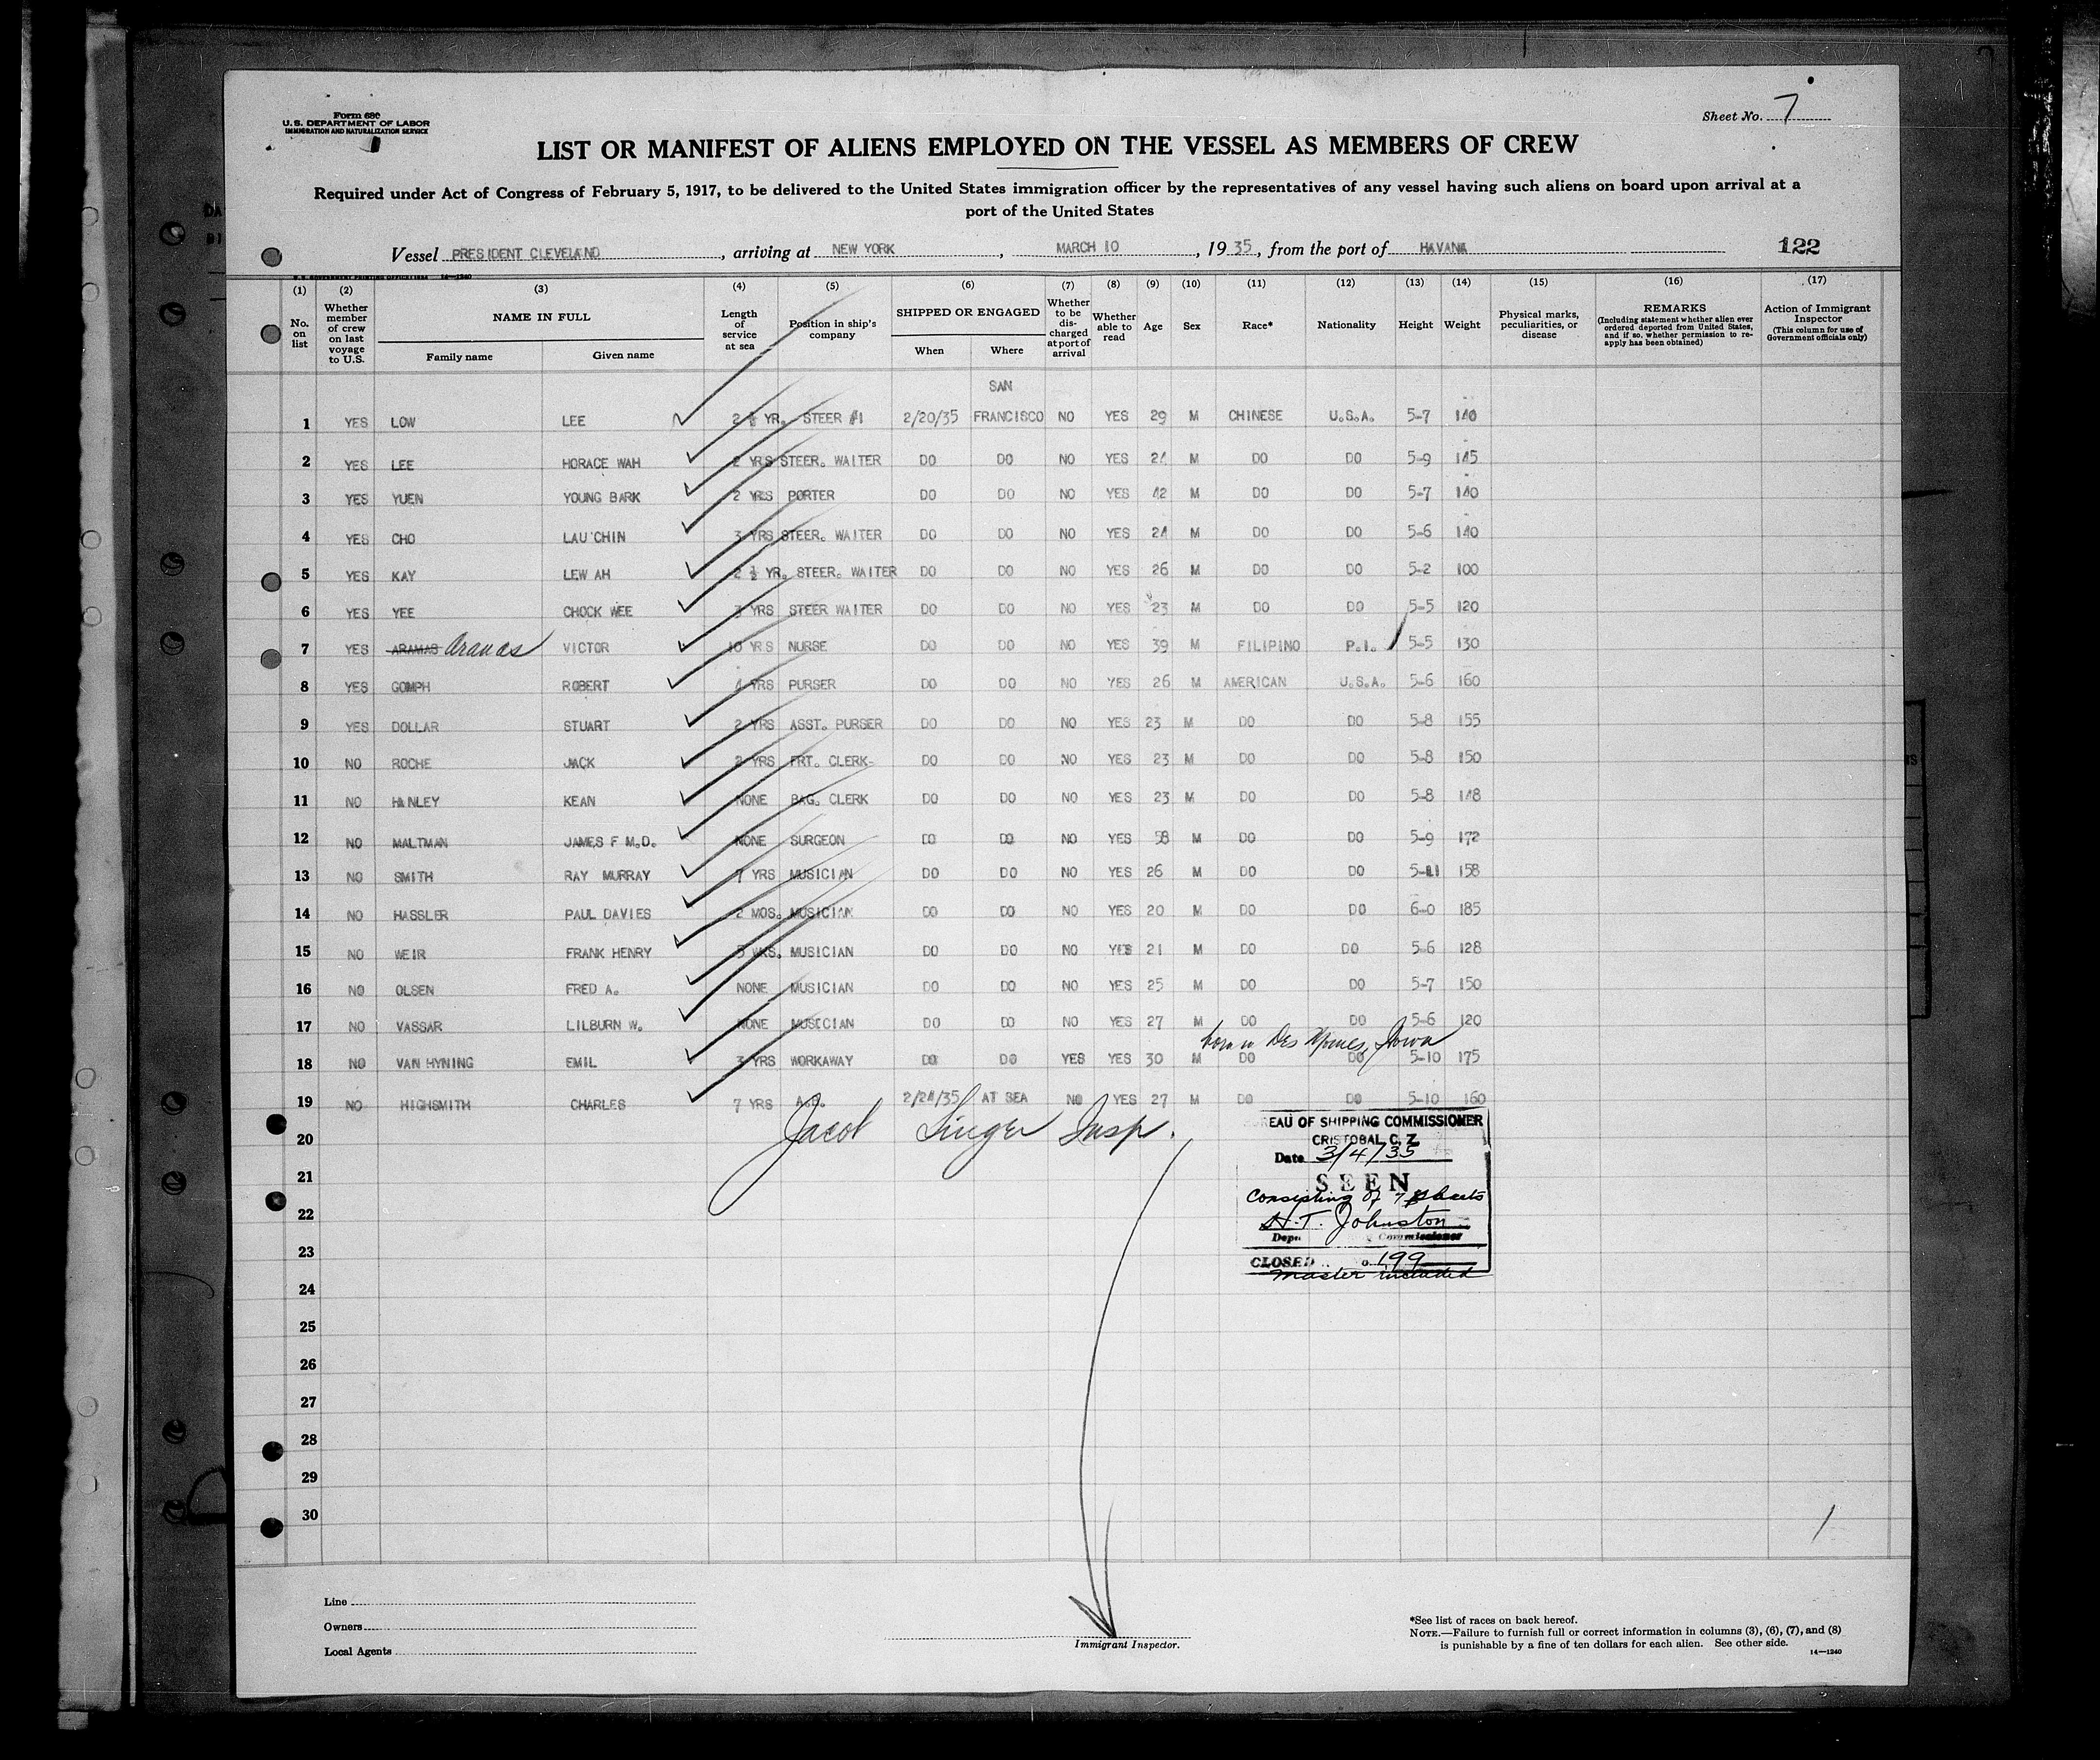 Form 680
U.S. DEPARTMENT OF LABOR
IMMIGRATION AND NATURALIZATION SERVICE
Sheet No. 7
LIST OR MANIFEST OF ALIENS EMPLOYED ON THE VESSEL AS MEMBERS OF CREW
Required under Act of Congress of February 5, 1917, to be delivered to the United States immigration officer by the representatives of any vessel having such aliens on board upon arrival at a
port of the United States
Vessel PRESIDENT CLEVELAND, arriving at NEW YORK, MARCH 10, 1935, from the port of HAVANA 122
(1) No. on list
(2) Whether member of crew on last voyage to U.S.
(3) NAME IN FULL Family name Given name
(4) Length of service at sea
(5) Position in ship's company
(6) SHIPPED OR ENGAGED When Where
(7) Whether to be discharged at port of arrival
(8) Whether able to read
(9) Age
(10) Sex
(11) Race*
(12) Nationality
(13) Height
(14) Weight
(15) Physical marks, peculiarities, or disease
(16) REMARKS (Including statement whether alien ever ordered deported from United States, and if so, whether permission to reapply has been obtained)
(17) Action of Immigrant Inspector (This column for use of Government officials only)
SAN
1 YES LOW LEE 2 ½ YR. STEER #1 2/20/35 FRANCISCO NO YES 29 M CHINESE U.S.A. 5-7 140
2 YES LEE HORACE WAH 2 YRS STEER. WAITER DO DO NO YES 24 M DO DO 5-9 145
3 YES YUEN YOUNG BARK 2 YRS PORTER DO DO NO YES 42 M DO DO 5-7 140
4 YES CHO LAU CHIN 3 YRS STEER. WAITER DO DO NO YES 24 M DO DO 5-6 140
5 YES KAY LEW AH 2 ½ YR. STEER. WAITER DO DO NO YES 26 M DO DO 5-2 100
6 YES YEE CHOCK WEE 3 YRS STEER WAITER DO DO NO YES 23 M DO DO 5-5 120
7 YES ARAMAS Aranas VICTOR 10 YRS NURSE DO DO NO YES 39 M FILIPINO P.I. 5-5 130
8 YES GOMPH ROBERT 4 YRS PURSER DO DO NO YES 26 M AMERICAN U.S.A. 5-6 160
9 YES DOLLAR STUART 2 YRS ASST. PURSER DO DO NO YES 23 M DO DO 5-8 155
10 NO ROCHE JACK 2 YRS FRT. CLERK DO DO NO YES 23 M DO DO 5-8 150
11 NO HANLEY KEAN NONE BAG. CLERK DO DO NO YES 23 M DO DO 5-8 148
12 NO MALTMAN JAMES F M.D. NONE SURGEON DO DO NO YES 58 M DO DO 5-9 172
13 NO SMITH RAY MURRAY 7 YRS MUSICIAN DO DO NO YES 26 M DO DO 5-11 158
14 NO HASSLER PAUL DAVIES 2 MOS. MUSICIAN DO DO NO YES 20 M DO DO 6-0 185
15 NO WEIR FRANK HENRY 3 WKS. MUSICIAN DO DO NO YES 21 M DO DO 5-6 128
16 NO OLSEN FRED A. NONE MUSICIAN DO DO NO YES 25 M DO DO 5-7 150
17 NO VASSAR LILBURN W. NONE MUSICIAN DO DO NO YES 27 M DO DO 5-6 120
born in Des Moines, Iowa
18 NO VAN HYNING EMIL 3 YRS WORKAWAY DO DO YES YES 30 M DO DO 5-10 175
19 NO HIGHSMITH CHARLES 7 YRS A.B. 2/24/35 AT SEA NO YES 27 M DO DO 5-10 160
Jacob Singer Insp.
20
21
22
23
24
25
26
27
28
29
30
EAU OF SHIPPING COMMISSIONER
CRISTOBAL, C. Z.
Date 3/4/35
SEEN
Consisting of 7 sheets
H.T. Johnston
Depu Commissioner
CLOSED 199
Master included
Line
Owners
Local Agents
Immigrant Inspector.
*See list of races on back hereof.
NOTE.—Failure to furnish full or correct information in columns (3), (6), (7), and (8)
is punishable by a fine of ten dollars for each alien. See other side.
14—1240